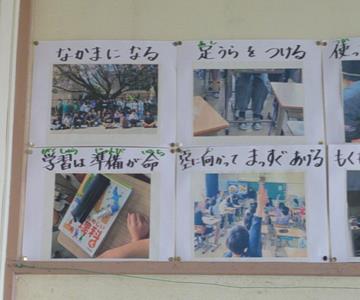 なかまになる
足うらをつける
使っ
学習は準備が命
空に向かってまっすぐあげる
もく